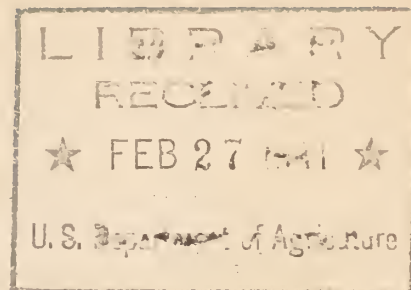 LIBRARY
RECEIVED
★ FEB 27 ★
U. S. Department of Agriculture